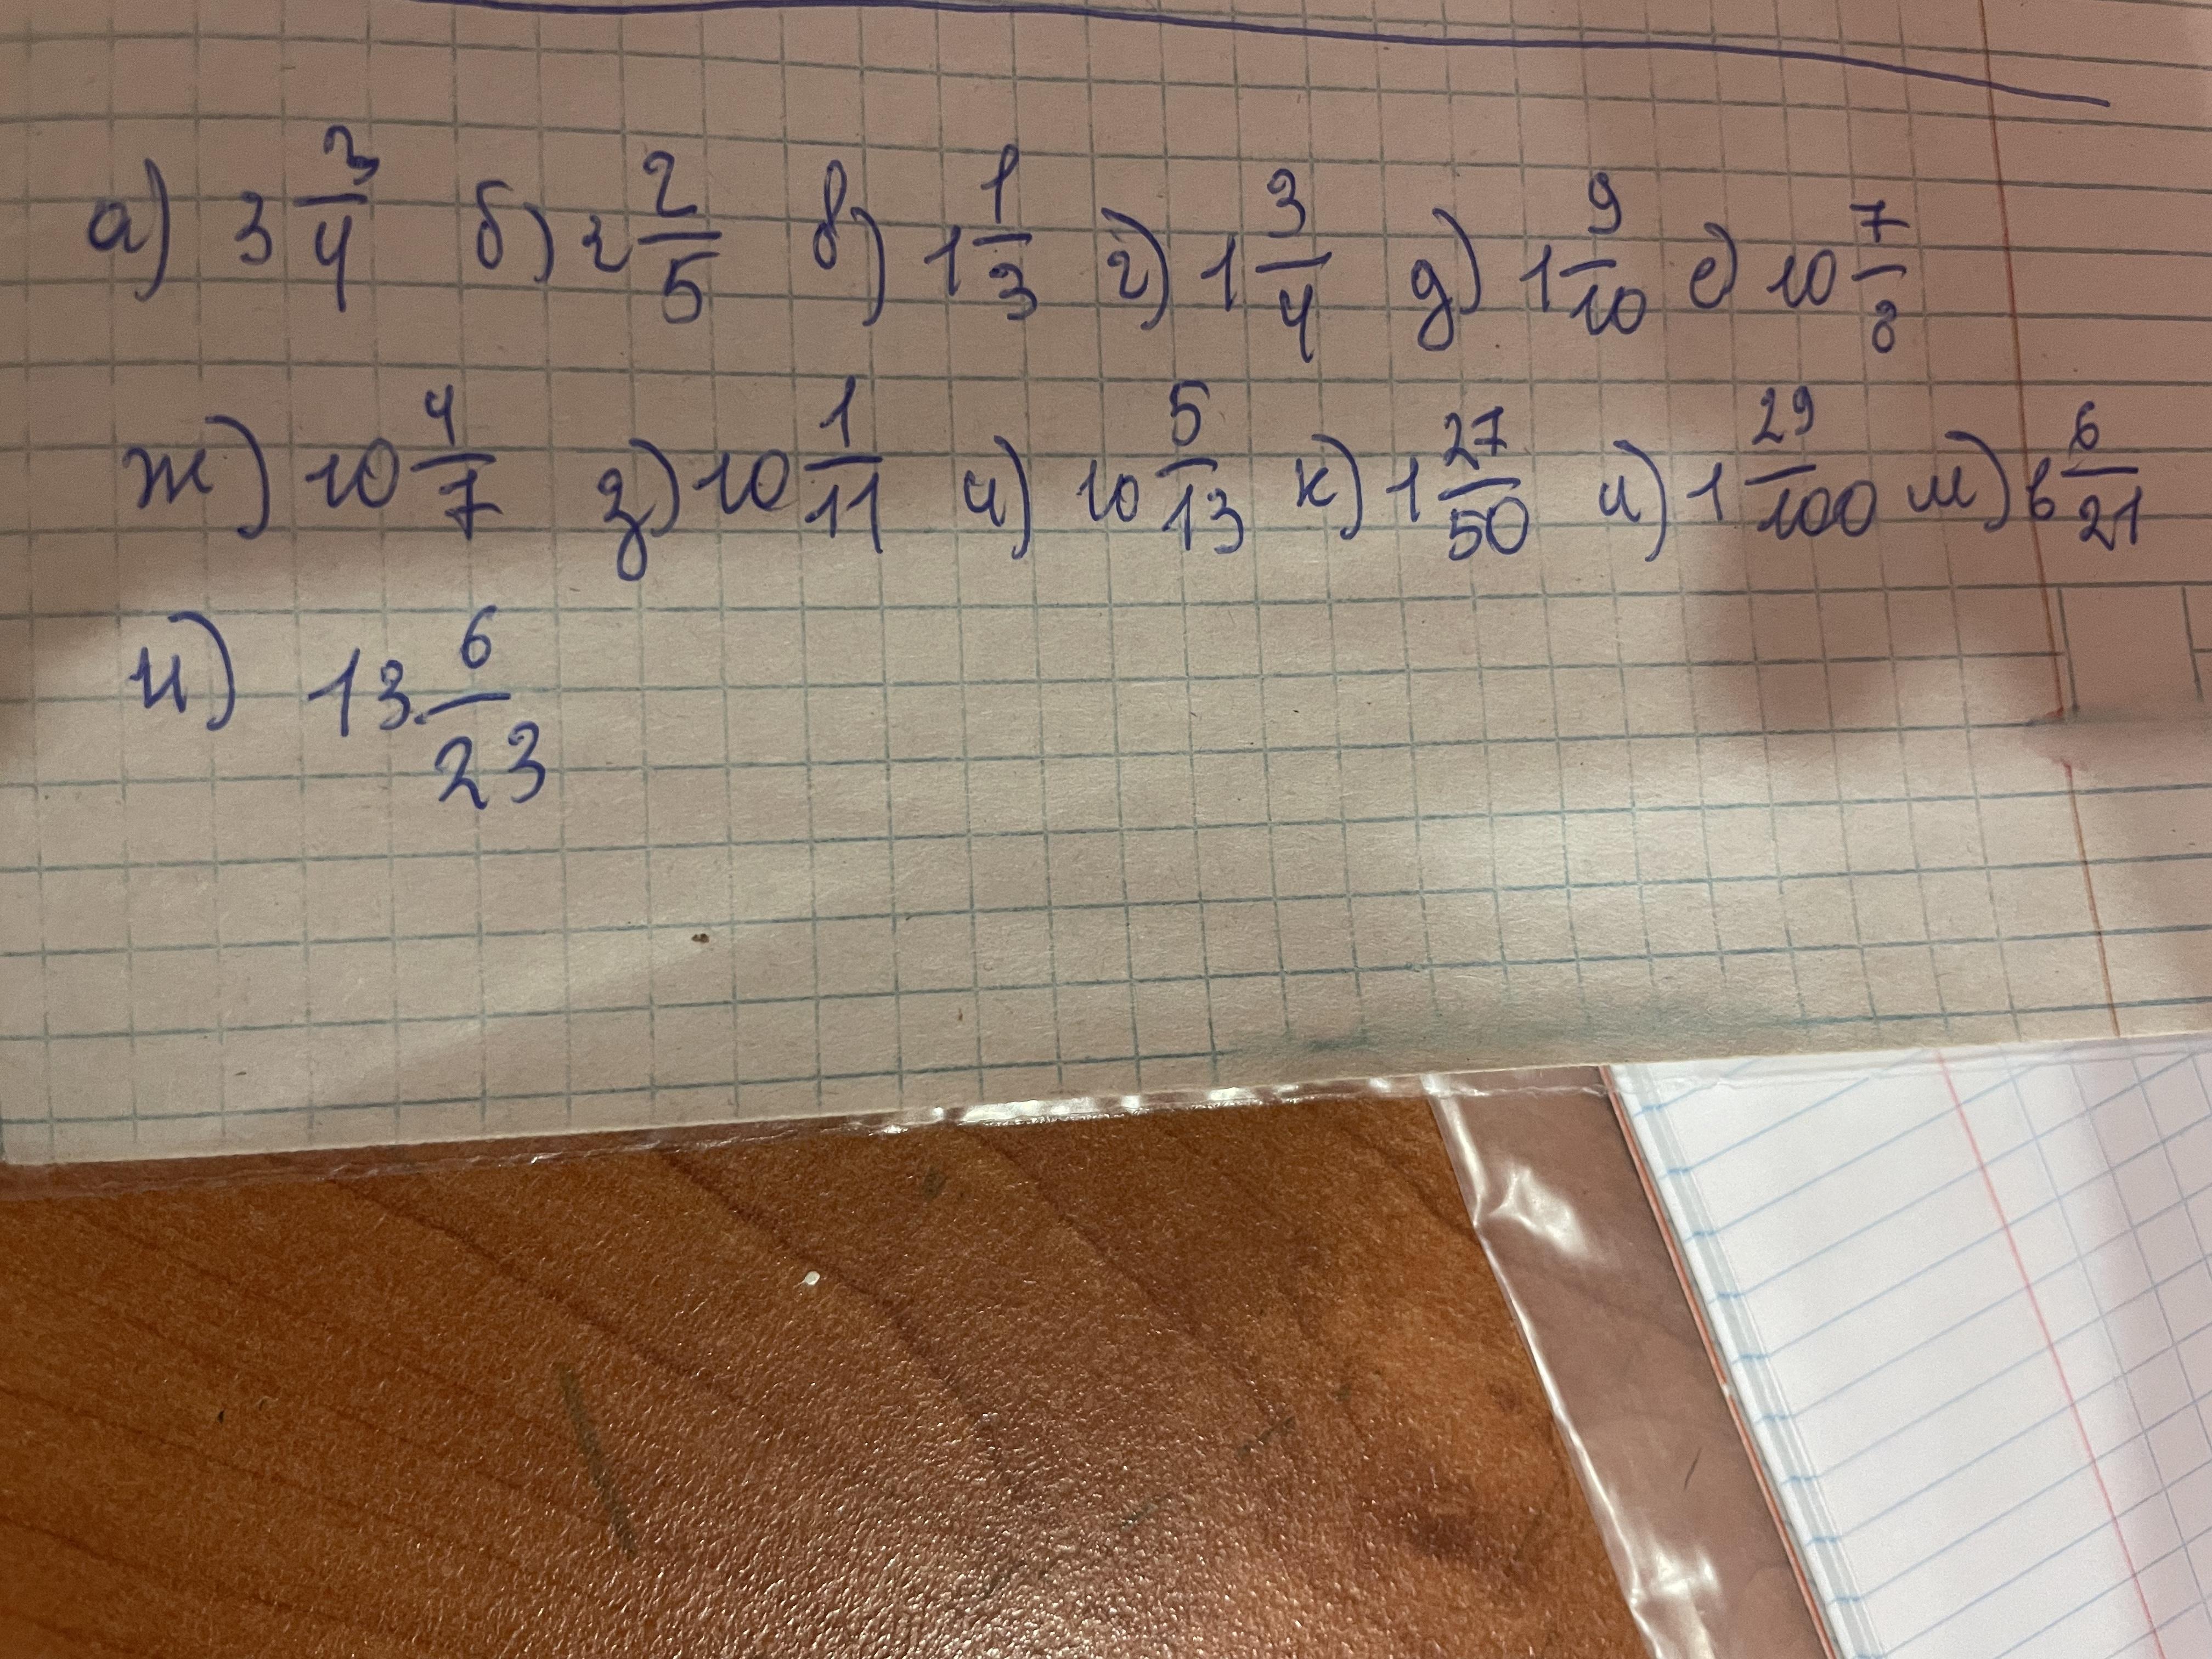 а) 3 3/4 б) 2 2/5 в) 1 1/3 г) 1 3/4 д) 1 9/10 е) 10 7/8
ж) 10 4/7 з) 10 1/11 и) 10 5/13 к) 1 27/50 л) 1 29/100 м) 6 6/21
н) 13 6/23